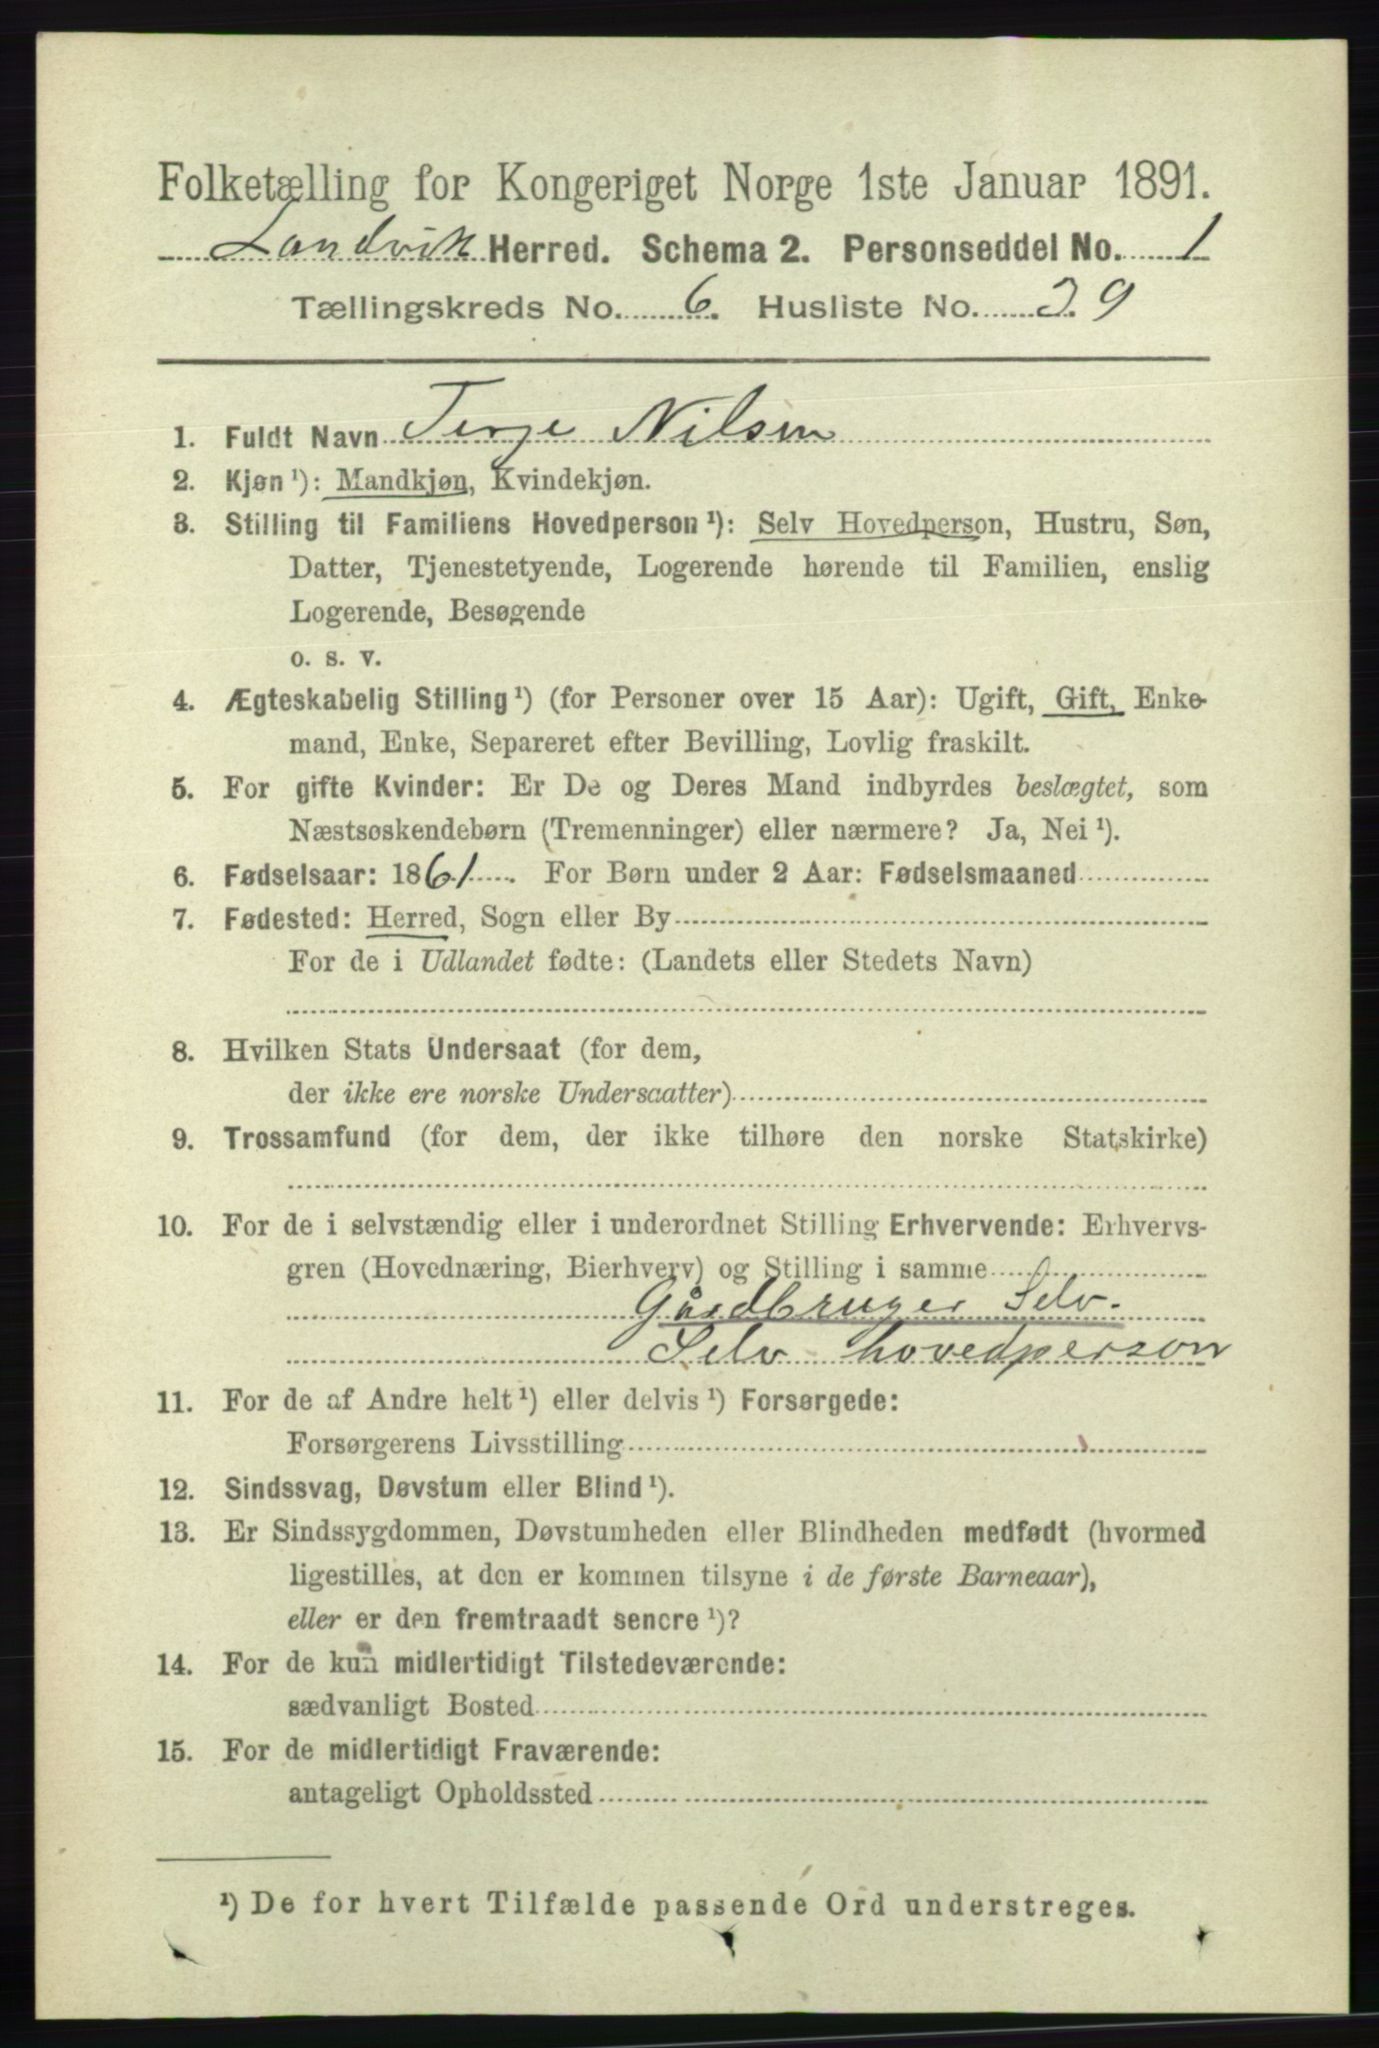 Folketælling for Kongeriget Norge 1ste Januar 1891.
Landvik Herred. Schema 2. Personseddel No. 1
Tællingskreds No. 6. Husliste No. 29
1. Fuldt Navn Terje Nilsen
2. Kjøn ¹): Mandkjøn, Kvindekjøn.
3. Stilling til Familiens Hovedperson ¹): Selv Hovedperson, Hustru, Søn,
Datter, Tjenestetyende, Logerende hørende til Familien, enslig
Logerende, Besøgende
o. s. v.
4. Ægteskabelig Stilling ¹) (for Personer over 15 Aar): Ugift, Gift, Enke-
mand, Enke, Separeret efter Bevilling, Lovlig fraskilt.
5. For gifte Kvinder: Er De og Deres Mand indbyrdes beslægtet, som
Næstsøskendebørn (Tremenninger) eller nærmere? Ja, Nei ¹).
6. Fødselsaar: 1861. For Børn under 2 Aar: Fødselsmaaned
7. Fødested: Herred, Sogn eller By
For de i Udlandet fødte: (Landets eller Stedets Navn)
8. Hvilken Stats Undersaat (for dem,
der ikke ere norske Undersaatter)
9. Trossamfund (for dem, der ikke tilhøre den norske Statskirke)
10. For de i selvstændig eller i underordnet Stilling Erhvervende: Erhvervs-
gren (Hovednæring, Bierhverv) og Stilling i samme
Gårdbruger Selv.
Selv hovedperson
11. For de af Andre helt ¹) eller delvis ¹) Forsørgede:
Forsørgerens Livsstilling
12. Sindssvag, Døvstum eller Blind ¹).
13. Er Sindssygdommen, Døvstumheden eller Blindheden medfødt (hvormed
ligestilles, at den er kommen tilsyne i de første Barneaar),
eller er den fremtraadt senere ¹)?
14. For de kun midlertidigt Tilstedeværende:
sædvanligt Bosted
15. For de midlertidigt Fraværende:
antageligt Opholdssted
¹) De for hvert Tilfælde passende Ord understreges.